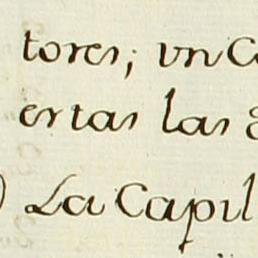 tores; vn C
ertas las
La Capil